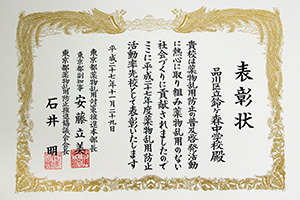 表彰状
品川区立鈴ヶ森中学校殿
貴校は薬物乱用防止の普及啓発活動
に熱心に取り組み薬物乱用のない
社会づくりに貢献されましたので
ここに平成二十七年度薬物乱用防止
活動率先校として表彰いたします
平成二十七年十一月二十九日
東京都薬物乱用対策推進本部長
東京都副知事 安藤立美
東京都薬物乱用防止推進協議会会長
石井 明